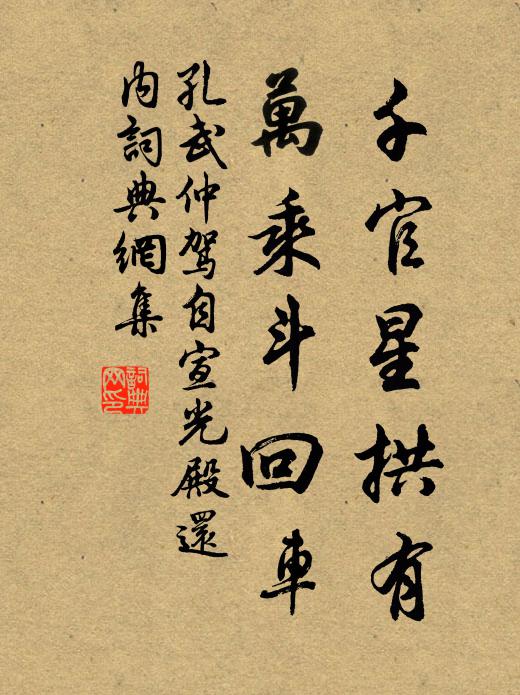 千官星拱有
萬乘斗回車
孔武仲駕自宣光殿還
內詞典網集
詞典網印